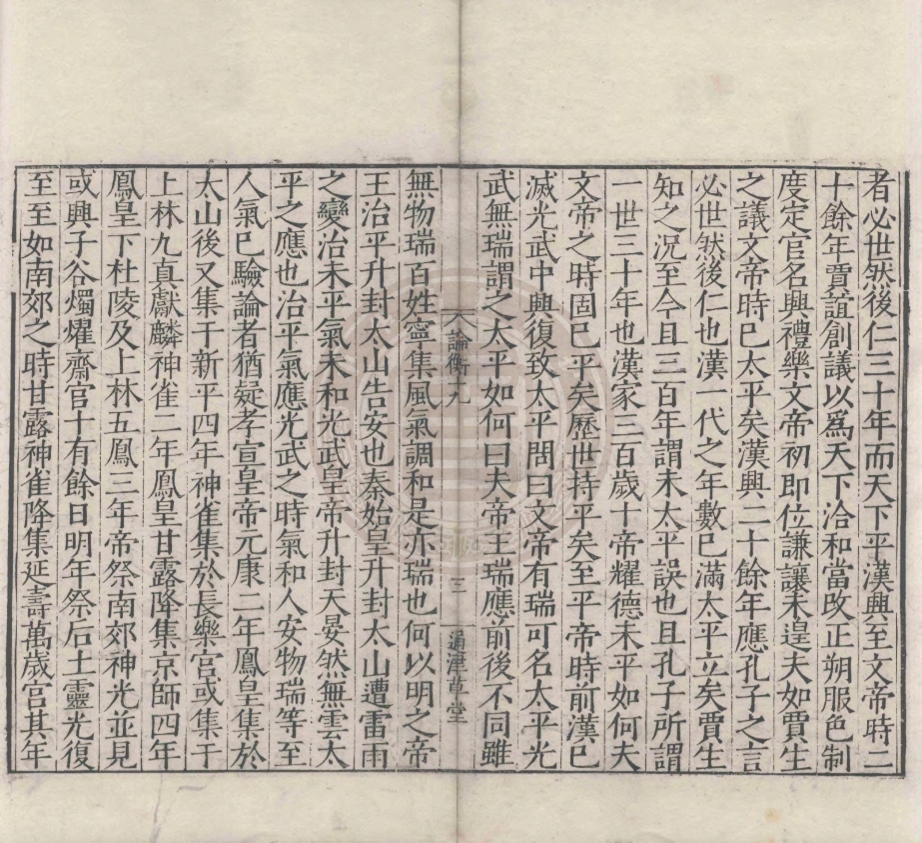 者必世然後仁三十年而天下平漢興至文帝時二
十餘年賈誼創議以爲天下洽和當改正朔服色制
度定官名興禮樂文帝初即位謙讓未遑夫如賈生
之議文帝時巳太平矣漢興二十餘年應孔子之言
必世然後仁也漢一代之年數巳滿太平立矣賈生
知之況至今且三百年謂未太平誤也且孔子所謂
一世三十年也漢家三百歲十帝耀德未平如何夫
文帝之時固巳平矣歷世持平矣至平帝時前漢巳
滅光武中興復致太平問曰文帝有瑞可名太平光
武無瑞謂之太平如何曰夫帝王瑞應前後不同雖
論衡十九
三
通津草堂
無物瑞百姓寧集風氣調和是亦瑞也何以明之帝
王治平升封太山告安也秦始皇升封太山遭雷雨
之變治未平氣未和光武皇帝升封天晏然無雲太
平之應也治平氣應光武之時氣和人安物瑞等至
人氣巳驗論者猶疑孝宣皇帝元康二年鳳皇集於
太山後又集于新平四年神雀集於長樂宫或集于
上林九真獻麟神雀二年鳳皇甘露降集京師四年
鳳皇下杜陵及上林五鳳三年帝祭南郊神光並見
或興子谷燭燿齋宫十有餘日明年祭后土靈光復
至至如南郊之時甘露神雀降集延壽萬歲宫其年